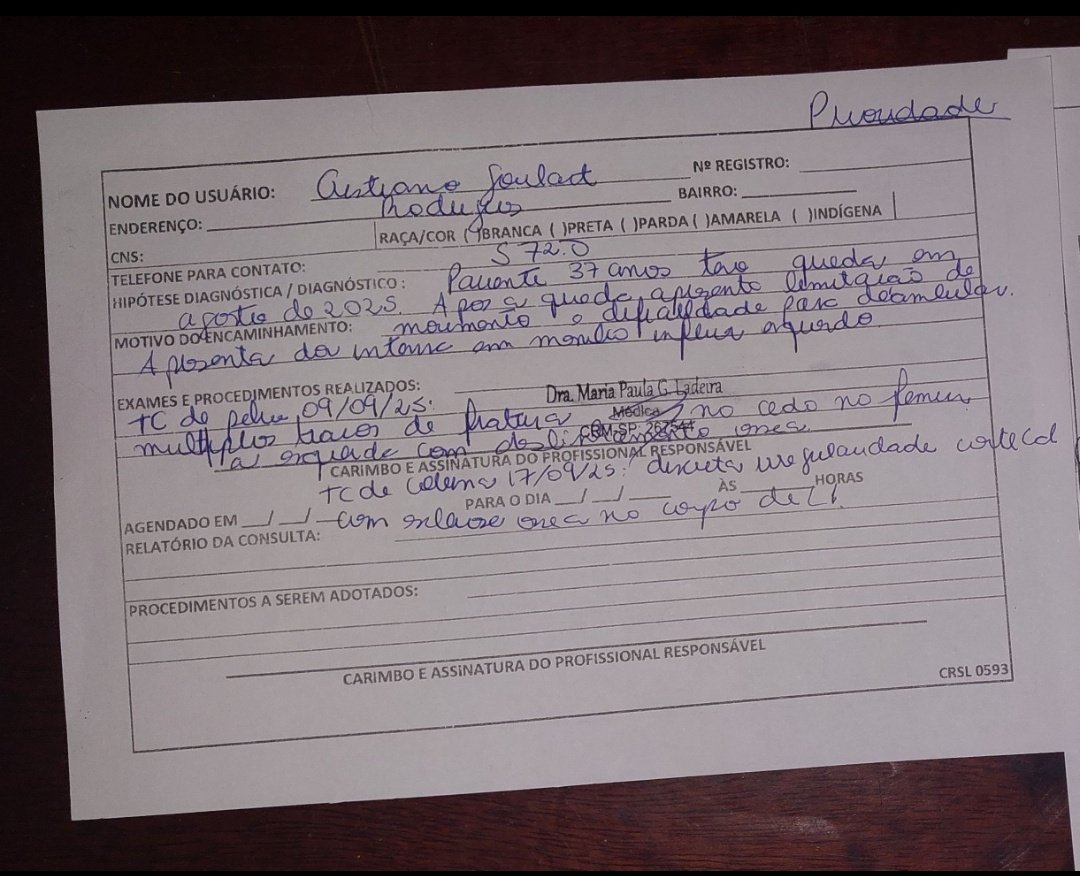 Prioridade
NOME DO USUÁRIO: Cristiano Goulart
Rodrigues
Nº REGISTRO:
ENDEREÇO:
BAIRRO:
CNS:
RAÇA/COR ( )BRANCA ( )PRETA ( )PARDA ( )AMARELA ( )INDÍGENA
TELEFONE PARA CONTATO:
S 72.0
HIPÓTESE DIAGNÓSTICA / DIAGNÓSTICO : Paciente 37 anos teve queda em
agosto de 2025. Apos a queda, apresenta limitação de
MOTIVO DO ENCAMINHAMENTO: movimento e dificuldade para deambular.
Apresenta dor intensa em membro inferior esquerdo
EXAMES E PROCEDIMENTOS REALIZADOS:
TC de pelve 09/09/25:
Dra. Maria Paula G. Ladeira
Médica
CRM-SP: 267544
multiplos traços de fratura no femur
a esquerda com ossea
CARIMBO E ASSINATURA DO PROFISSIONAL RESPONSÁVEL
TC de coluna 17/09/25: discreta irregularidade cortical
AGENDADO EM __/__/__ PARA O DIA __/__/__ ÀS ______ HORAS
com esclerose ossea no corpo de L1
RELATÓRIO DA CONSULTA:
PROCEDIMENTOS A SEREM ADOTADOS:
CARIMBO E ASSINATURA DO PROFISSIONAL RESPONSÁVEL
CRSL 0593